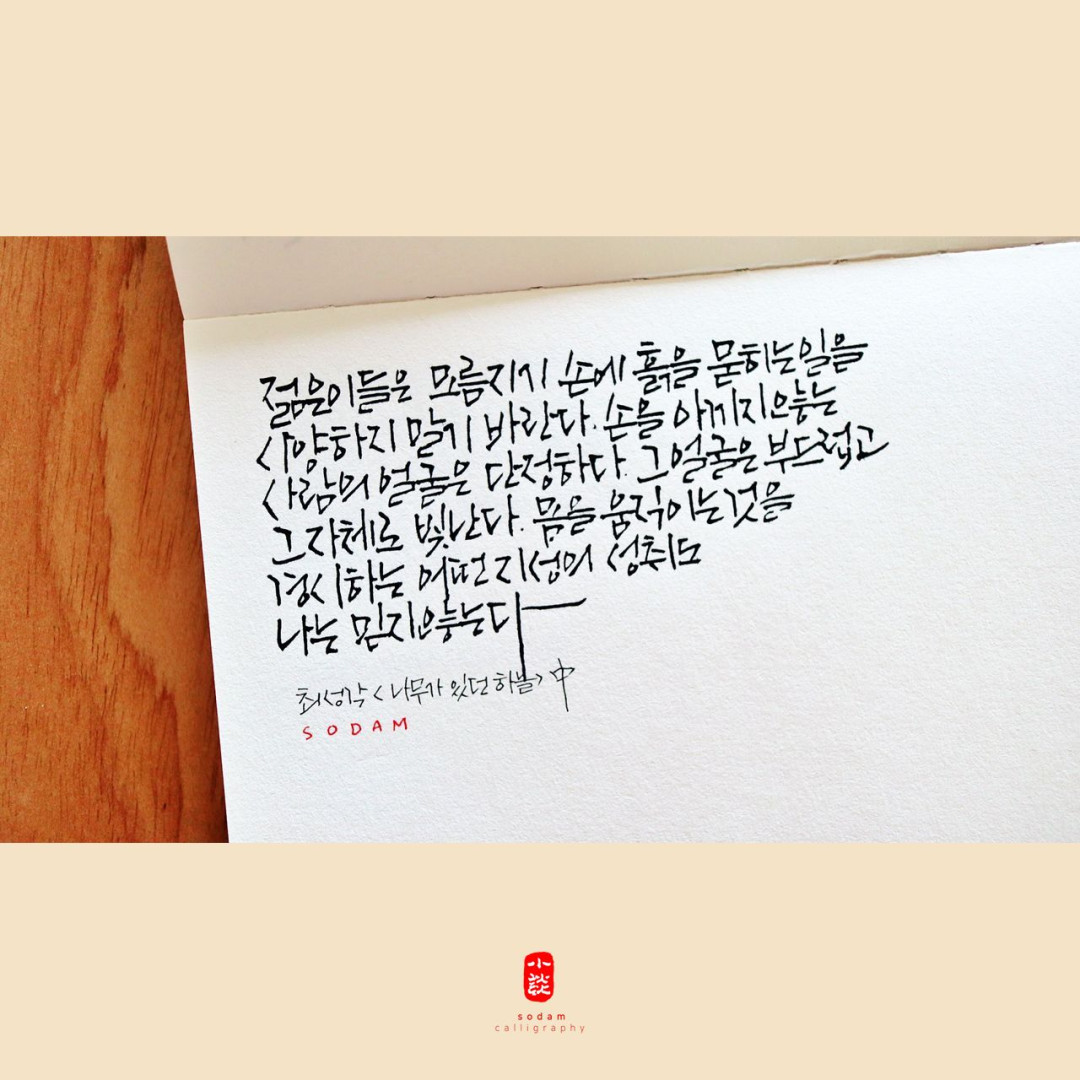 젊은이들은 모름지기 손에 흙을 묻히는일을
사양하지 말기 바란다. 손을 아끼지않는
사람의 얼굴은 단정하다. 그얼굴은 부드럽고
그 자체로 빛난다. 몸을 움직이는것을
경시하는 어떤 지성의 성취도
나는 믿지않는다
최성각 <나무가 있던 하늘> 中
SODAM
小談
sodam
calligraphy